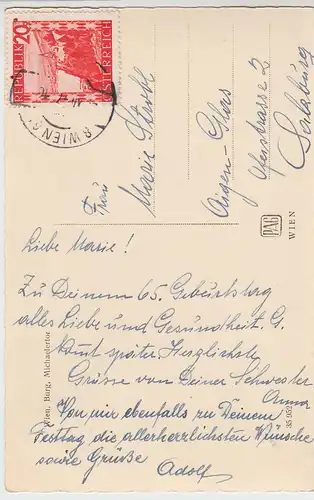 20g
REPUBLIK ÖSTERREICH
WIEN
Frau
Marie
Salzburg
PAG
WIEN
Liebe Marie!
Zu Deinem 65. Geburtstag
alles Liebe und Gesundheit. G.
kommt später. Herzlichste
Grüsse von Deiner Schwester
Anna
Von mir ebenfalls zu Deinem
Festtag die allerherzlichsten Wünsche
sowie Grüße
Adolf
Wien, Burg, Michaelertor